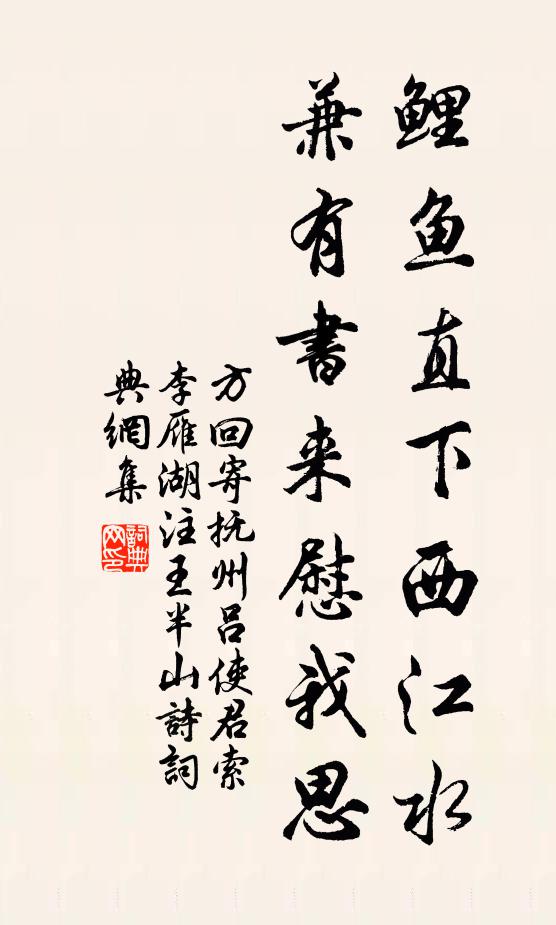 鲤鱼直下西江水
兼有書来慰我思
方回寄抚州吕使君索
李雁湖注王半山詩詞
典網集
詞典網印